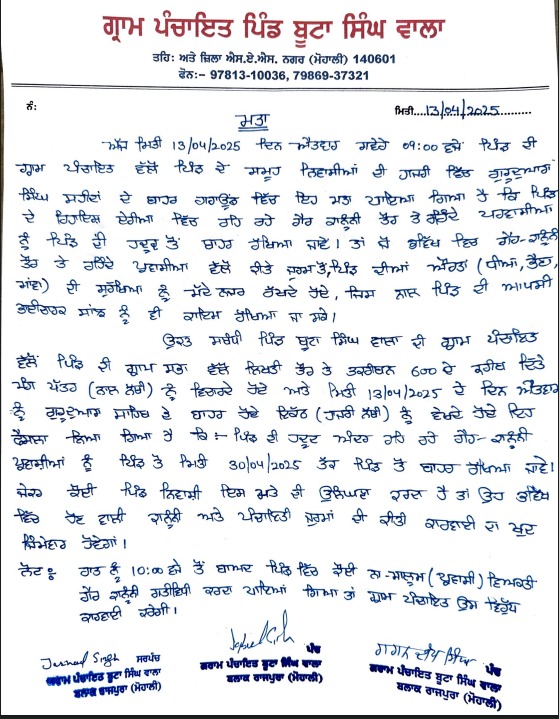 ਗ੍ਰਾਮ ਪੰਚਾਇਤ ਪਿੰਡ ਬੂਟਾ ਸਿੰਘ ਵਾਲਾ
ਤਹਿ: ਅਤੇ ਜ਼ਿਲਾ ਐਸ.ਏ.ਐਸ. ਨਗਰ (ਮੋਹਾਲੀ) 140601
ਫੋਨ:- 97813-10036, 79869-37321
ਨੰ: ਮਿਤੀ 13/04/2025
ਮਤਾ
ਅੱਜ ਮਿਤੀ 13/04/2025 ਦਿਨ ਐਤਵਾਰ ਸਵੇਰੇ 09:00 ਵਜੇ ਪਿੰਡ ਦੀ
ਗ੍ਰਾਮ ਪੰਚਾਇਤ ਵੱਲੋਂ ਪਿੰਡ ਦੇ ਸਮੂਹ ਨਿਵਾਸੀਆਂ ਦੀ ਹਾਜਰੀ ਵਿੱਚ ਗੁਰੂਦੁਆਰਾ
ਸਿੰਘ ਸ਼ਹੀਦਾਂ ਦੇ ਬਾਹਰ ਗਰਾਊਂਡ ਵਿੱਚ ਇਹ ਮਤਾ ਪਾਇਆ ਗਿਆ ਹੈ ਕਿ ਪਿੰਡ
ਦੇ ਰਿਹਾਇਸ਼ ਏਰੀਆ ਵਿੱਚ ਰਹਿ ਰਹੇ ਗੈਰ ਕਾਨੂੰਨੀ ਤੌਰ ਤੇ ਰਹਿੰਦੇ ਪਰਵਾਸੀਆਂ
ਨੂੰ ਪਿੰਡ ਦੀ ਹਦੂਦ ਤੋਂ ਬਾਹਰ ਰੱਖਿਆ ਜਾਵੇ। ਤਾਂ ਜੋ ਭਵਿੱਖ ਵਿੱਚ ਗੈਰ-ਕਾਨੂੰਨੀ
ਤੌਰ ਤੇ ਰਹਿੰਦੇ ਪ੍ਰਵਾਸੀਆ ਵੱਲੋਂ ਕੀਤੇ ਜੁਰਮ ਤੋਂ, ਪਿੰਡ ਦੀਆਂ ਔਰਤਾਂ (ਧੀਆਂ, ਭੈਣਾਂ,
ਮਾਂਵਾਂ) ਦੀ ਸੁਰੱਖਿਆ ਨੂੰ ਮੱਦੇ ਨਜ਼ਰ ਰੱਖਦੇ ਹੋਏ, ਜਿਸ ਨਾਲ ਪਿੰਡ ਦੀ ਆਪਸੀ
ਭਾਈਚਾਰਕ ਸਾਂਝ ਨੂੰ ਵੀ ਕਾਇਮ ਰੱਖਿਆ ਜਾ ਸਕੇ।
ਉਕਤ ਸਬੰਧੀ ਪਿੰਡ ਬੂਟਾ ਸਿੰਘ ਵਾਲਾ ਦੀ ਗ੍ਰਾਮ ਪੰਚਾਇਤ
ਵੱਲੋਂ ਪਿੰਡ ਦੀ ਗ੍ਰਾਮ ਸਭਾ ਵੱਲੋਂ ਲਿਖਤੀ ਤੌਰ ਤੇ ਤਕਰੀਬਨ 600 ਦੇ ਕਰੀਬ ਦਿੱਤੇ
ਮੰਗ ਪੱਤਰ (ਨਾਲ ਲੱਗੀ) ਨੂੰ ਵਿਚਾਰਦੇ ਹੋਏ ਅਤੇ ਮਿਤੀ 13/04/2025 ਦੇ ਦਿਨ ਐਤਵਾਰ
ਨੂੰ ਗੁਰੂਦੁਆਰਾ ਸਾਹਿਬ ਦੇ ਬਾਹਰ ਹੋਏ ਇਕੱਠ (ਹਾਜਰੀ ਲੱਗੀ) ਨੂੰ ਵੇਖਦੇ ਹੋਏ ਇਹ
ਫੈਸਲਾ ਲਿਆ ਗਿਆ ਹੈ ਕਿ :- ਪਿੰਡ ਦੀ ਹਦੂਦ ਅੰਦਰ ਰਹਿ ਰਹੇ ਗੈਰ-ਕਾਨੂੰਨੀ
ਪ੍ਰਵਾਸੀਆਂ ਨੂੰ ਪਿੰਡ ਤੋਂ ਮਿਤੀ 30/04/2025 ਤੱਕ ਪਿੰਡ ਤੋਂ ਬਾਹਰ ਰੱਖਿਆ ਜਾਵੇ।
ਜੇਕਰ ਕੋਈ ਪਿੰਡ ਨਿਵਾਸੀ ਇਸ ਮਤੇ ਦੀ ਉਲੰਘਣਾ ਕਰਦਾ ਹੈ ਤਾਂ ਉਹ ਭਵਿੱਖ
ਵਿੱਚ ਹੋਣ ਵਾਲੀ ਕਾਨੂੰਨੀ ਅਤੇ ਪੰਚਾਇਤੀ ਜੁਰਮਾਂ ਦੀ ਕੀਤੀ ਕਾਰਵਾਈ ਦਾ ਖੁਦ
ਜਿੰਮੇਵਾਰ ਹੋਵੇਗਾ।
ਨੋਟ : ਰਾਤ ਨੂੰ 10:00 ਵਜੇ ਤੋਂ ਬਾਅਦ ਪਿੰਡ ਵਿੱਚ ਕੋਈ ਨਾ-ਮਾਲੂਮ (ਪ੍ਰਵਾਸੀ) ਵਿਅਕਤੀ
ਗੈਰ ਕਾਨੂੰਨੀ ਗਤੀਵਿਧੀ ਕਰਦਾ ਪਾਇਆ ਗਿਆ ਤਾਂ ਗ੍ਰਾਮ ਪੰਚਾਇਤ ਉਸ ਵਿਰੁੱਧ
ਕਾਰਵਾਈ ਕਰੇਗੀ।
Singh ਸਰਪੰਚ
ਗਰਾਮ ਪੰਚਾਇਤ ਬੂਟਾ ਸਿੰਘ ਵਾਲਾ
ਬਲਾਕ ਰਾਜਪੁਰਾ (ਮੋਹਾਲੀ)
ਪੰਚ
ਗਰਾਮ ਪੰਚਾਇਤ ਬੂਟਾ ਸਿੰਘ ਵਾਲਾ
ਬਲਾਕ ਰਾਜਪੁਰਾ (ਮੋਹਾਲੀ)
ਗਗਨਦੀਪ ਸਿੰਘ ਪੰਚ
ਗਰਾਮ ਪੰਚਾਇਤ ਬੂਟਾ ਸਿੰਘ ਵਾਲਾ
ਬਲਾਕ ਰਾਜਪੁਰਾ (ਮੋਹਾਲੀ)